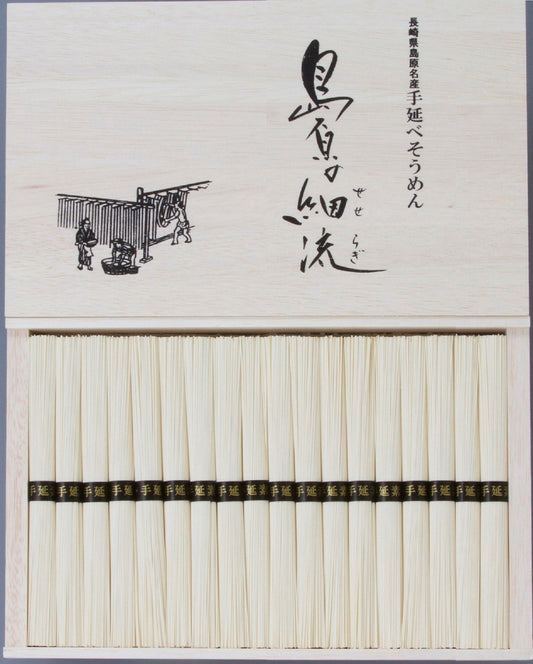 長崎県島原名産 手延べそうめん
島原の細流
せせらぎ
手延
手延
手延
手延
手延
手延
延素
手延
延素
手延
手延
手延
手延
延素
手延
手延
手延
手延